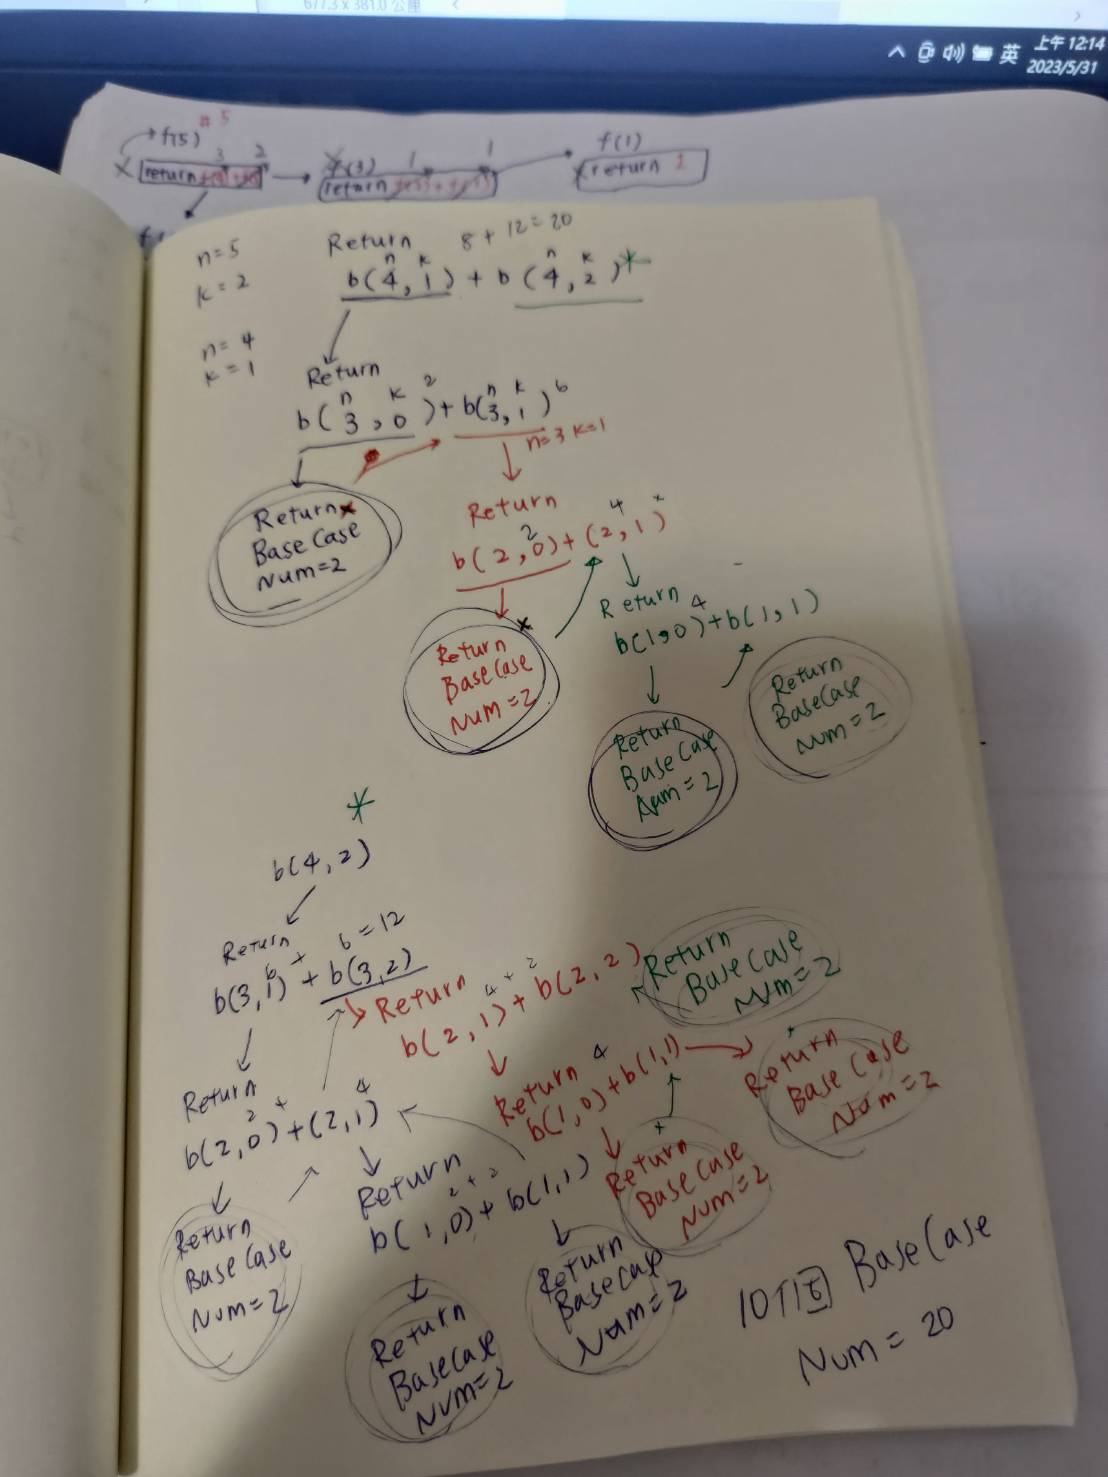 677.3 x 381.0 公厘
英
上午 12:14
2023/5/31
f(5) # 5
3 2
return
f(3) 1 1
return
f(1)
return 1
n=5
k=2
Return 8+12=20
n k n k
b(4,1) + b(4,2)*
n=4
k=1
Return
n k 2 n k 6
b(3,0)+b(3,1)
n=3 k=1
Return
Base Case
Num=2
Return
2 4
b(2,0)+(2,1)
Return
Base Case
Num=2
Return
4
b(1,0)+b(1,1)
Return
Base Case
Num=2
Return
Base Case
Num=2
*
b(4,2)
Return
6 + 6=12
b(3,1)+b(3,2)
Return
4 + 2
b(2,1)+b(2,2)
Return
Base Case
Num=2
Return
2 + 4
b(2,0)+(2,1)
Return 4
b(1,0)+b(1,1)
Return
Base Case
Num=2
Return
Base Case
Num=2
Return
Base Case
Num=2
Return
2+2
b(1,0)+b(1,1)
Return
Base Case
Num=2
Return
Base Case
Num=2
10個 Base Case
Num = 20